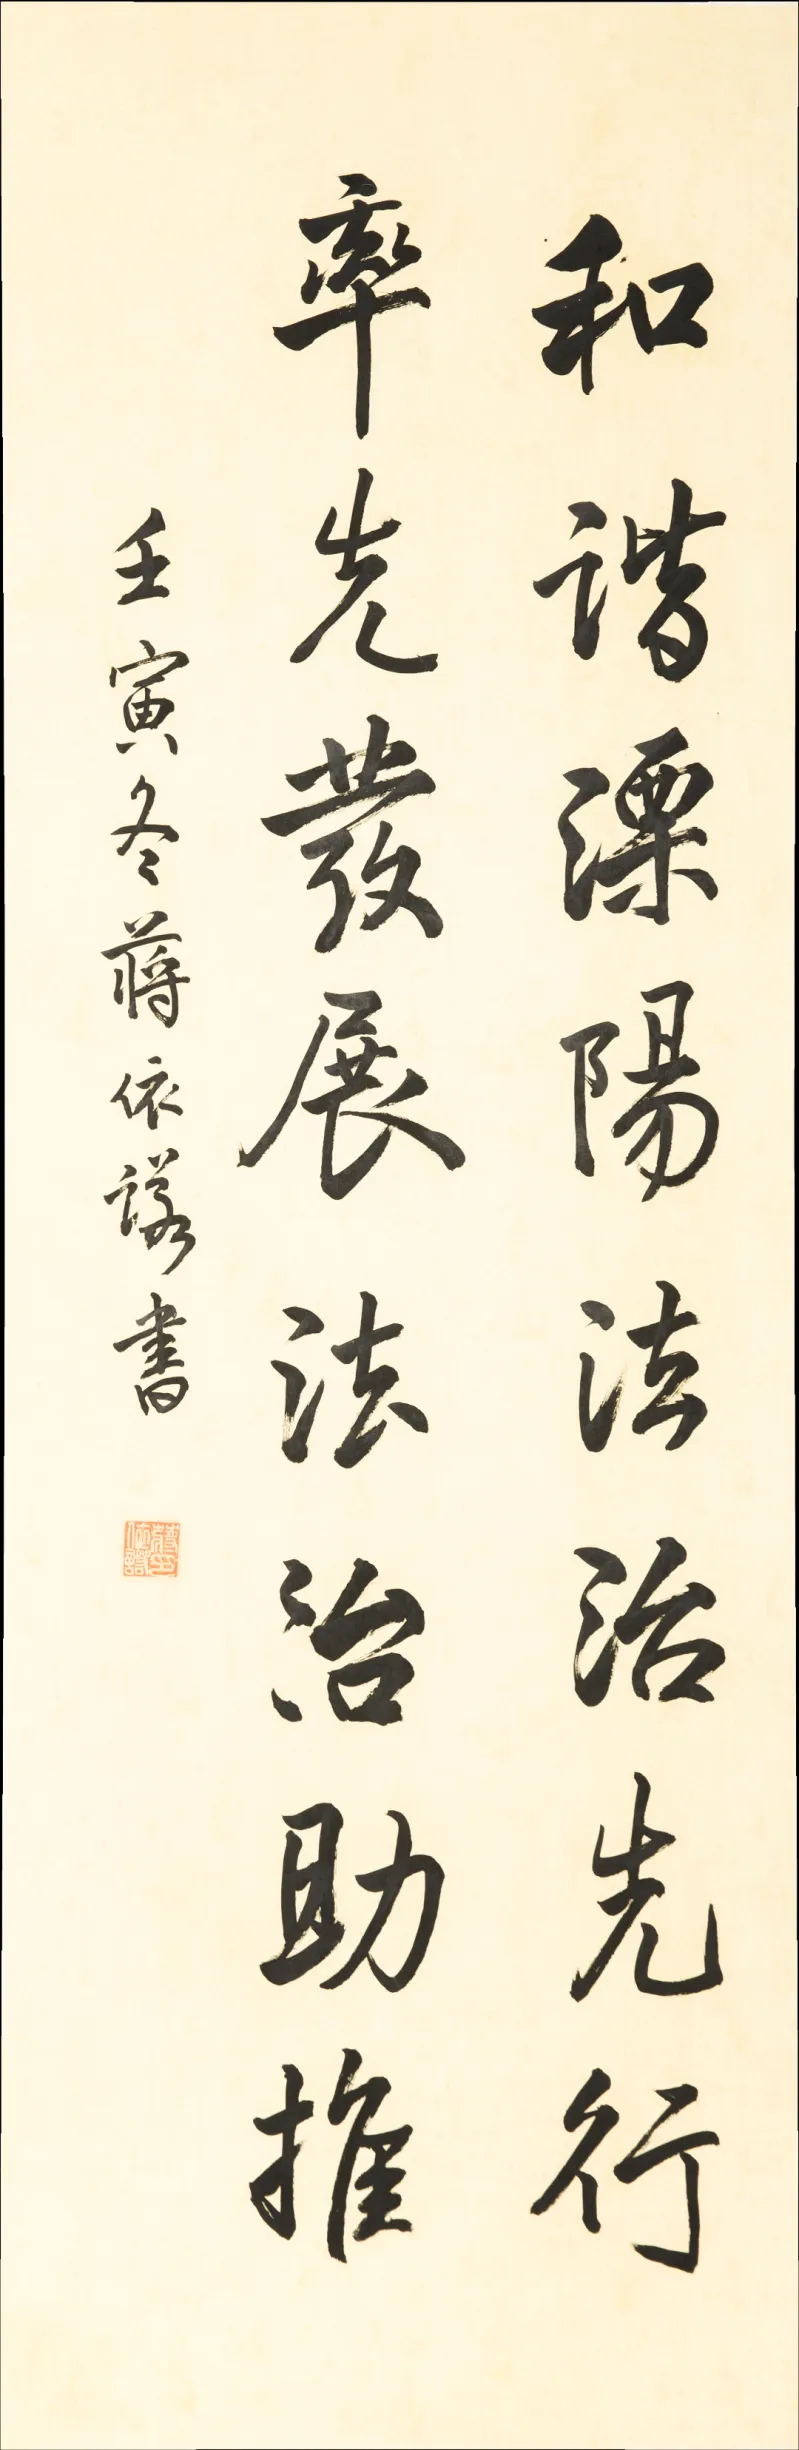 和諧溧陽法治先行
率先發展法治助推
壬寅冬蔣依諾書